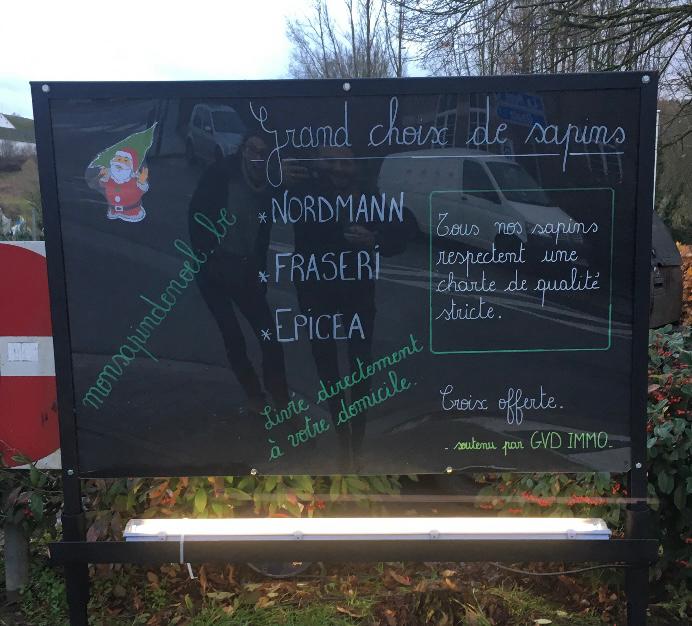 Grand choix de sapins
monsapindenoel.be
*NORDMANN
*FRASERI
*EPICEA
Tous nos sapins
respectent une
charte de qualité
stricte.
Livré directement
à votre domicile.
Croix offerte.
- soutenu par GVD IMMO.